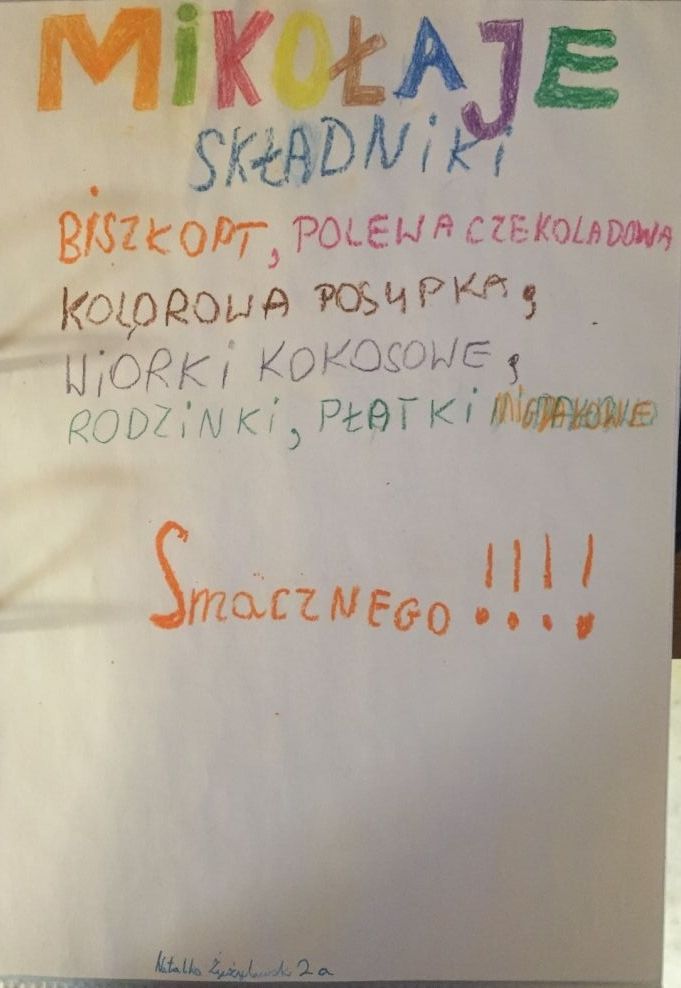 MiKOŁAJE
SKŁADNiKi
BiSZKOPT, POLEWA CZEKOLADOWA
KOLOROWA POSYPKA,
WiORKi KOKOSOWE,
RODZiNKi, PŁATKi MiGDAŁOWE
SmaczNEGO !!!!
2a